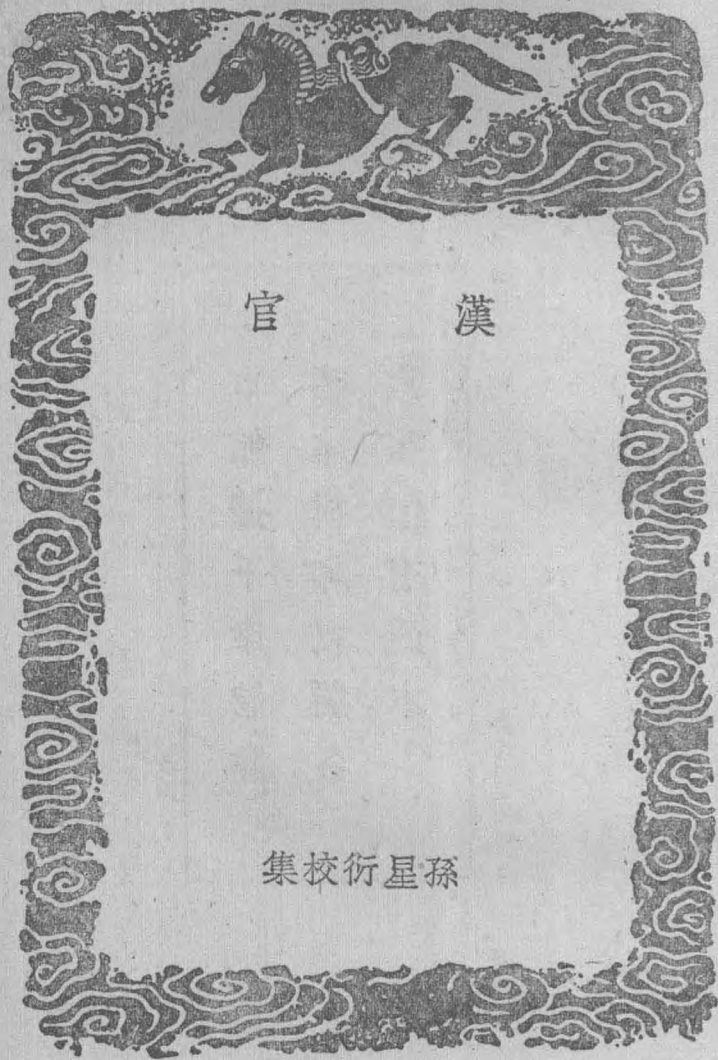 漢官
孫星衍校集